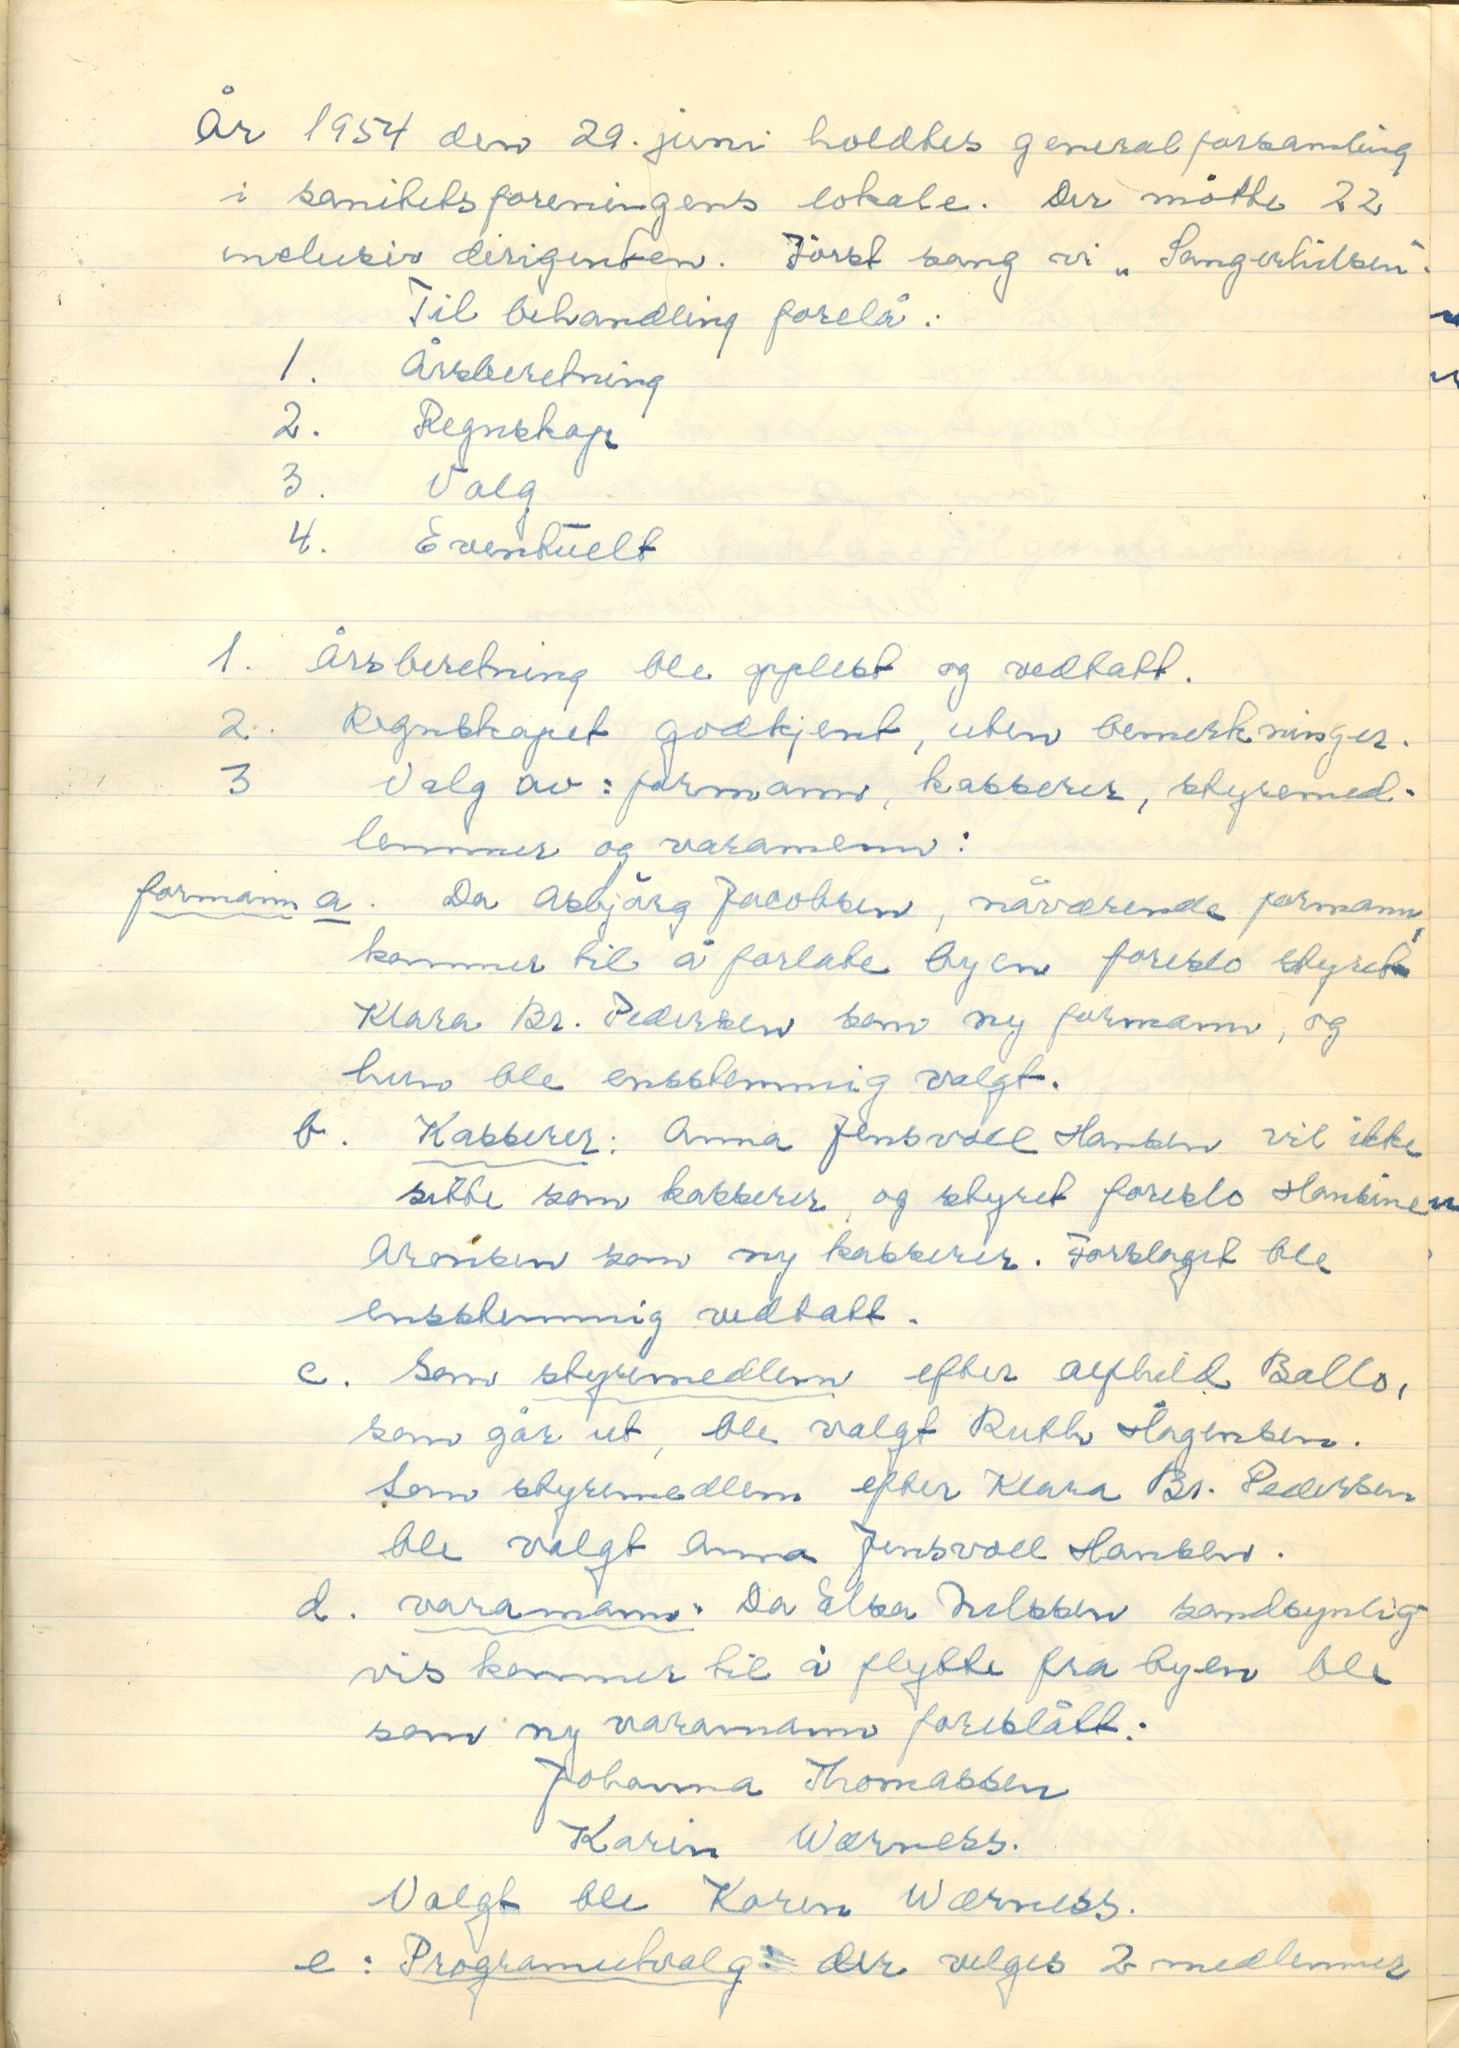 År 1954 den 29. juni holdtes generalforsamling
i sanitetsforeningens lokale. Der møtte 22
inclusiv dirigenten. Først sang vi „Sangerhilsen".
Til behandling forelå:
1. Årsberetning
2. Regnskap
3. Valg
4. Eventuelt
1. Årsberetning ble opplest og vedtatt.
2. Regnskapet godkjent, uten bemerkninger.
3 Valg av: formann, kasserer, styremed-
lemmer og varamenn:
formann a. Da Asbjörg Jacobsen, nåværende formann,
kommer til å forlate byen foreslo styret
Klara Br. Pedersen som ny formann, og
hun ble enstemmig valgt.
b. Kasserer: Anna Jensvoll Hansen vil ikke
sitte som kasserer, og styret foreslo Hansine
Aronsen som ny kasserer. Forslaget ble
ensstemmig vedtatt.
c. Som styremedlem efter Alfhild Ballo,
som går ut, ble valgt Ruth Hågensen.
Som styremedlem efter Klara Br. Pedersen
ble valgt Anna Jensvoll Hansen.
d. varamann: Da Elsa Nilssen sandsynlig
vis kommer til å flytte fra byen ble
som ny varamann foreslått:
Johanna Thomassen
Karin Wærness.
Valgt ble Karen Wærness.
e: Programutvalg: der velges 2 medlemmer